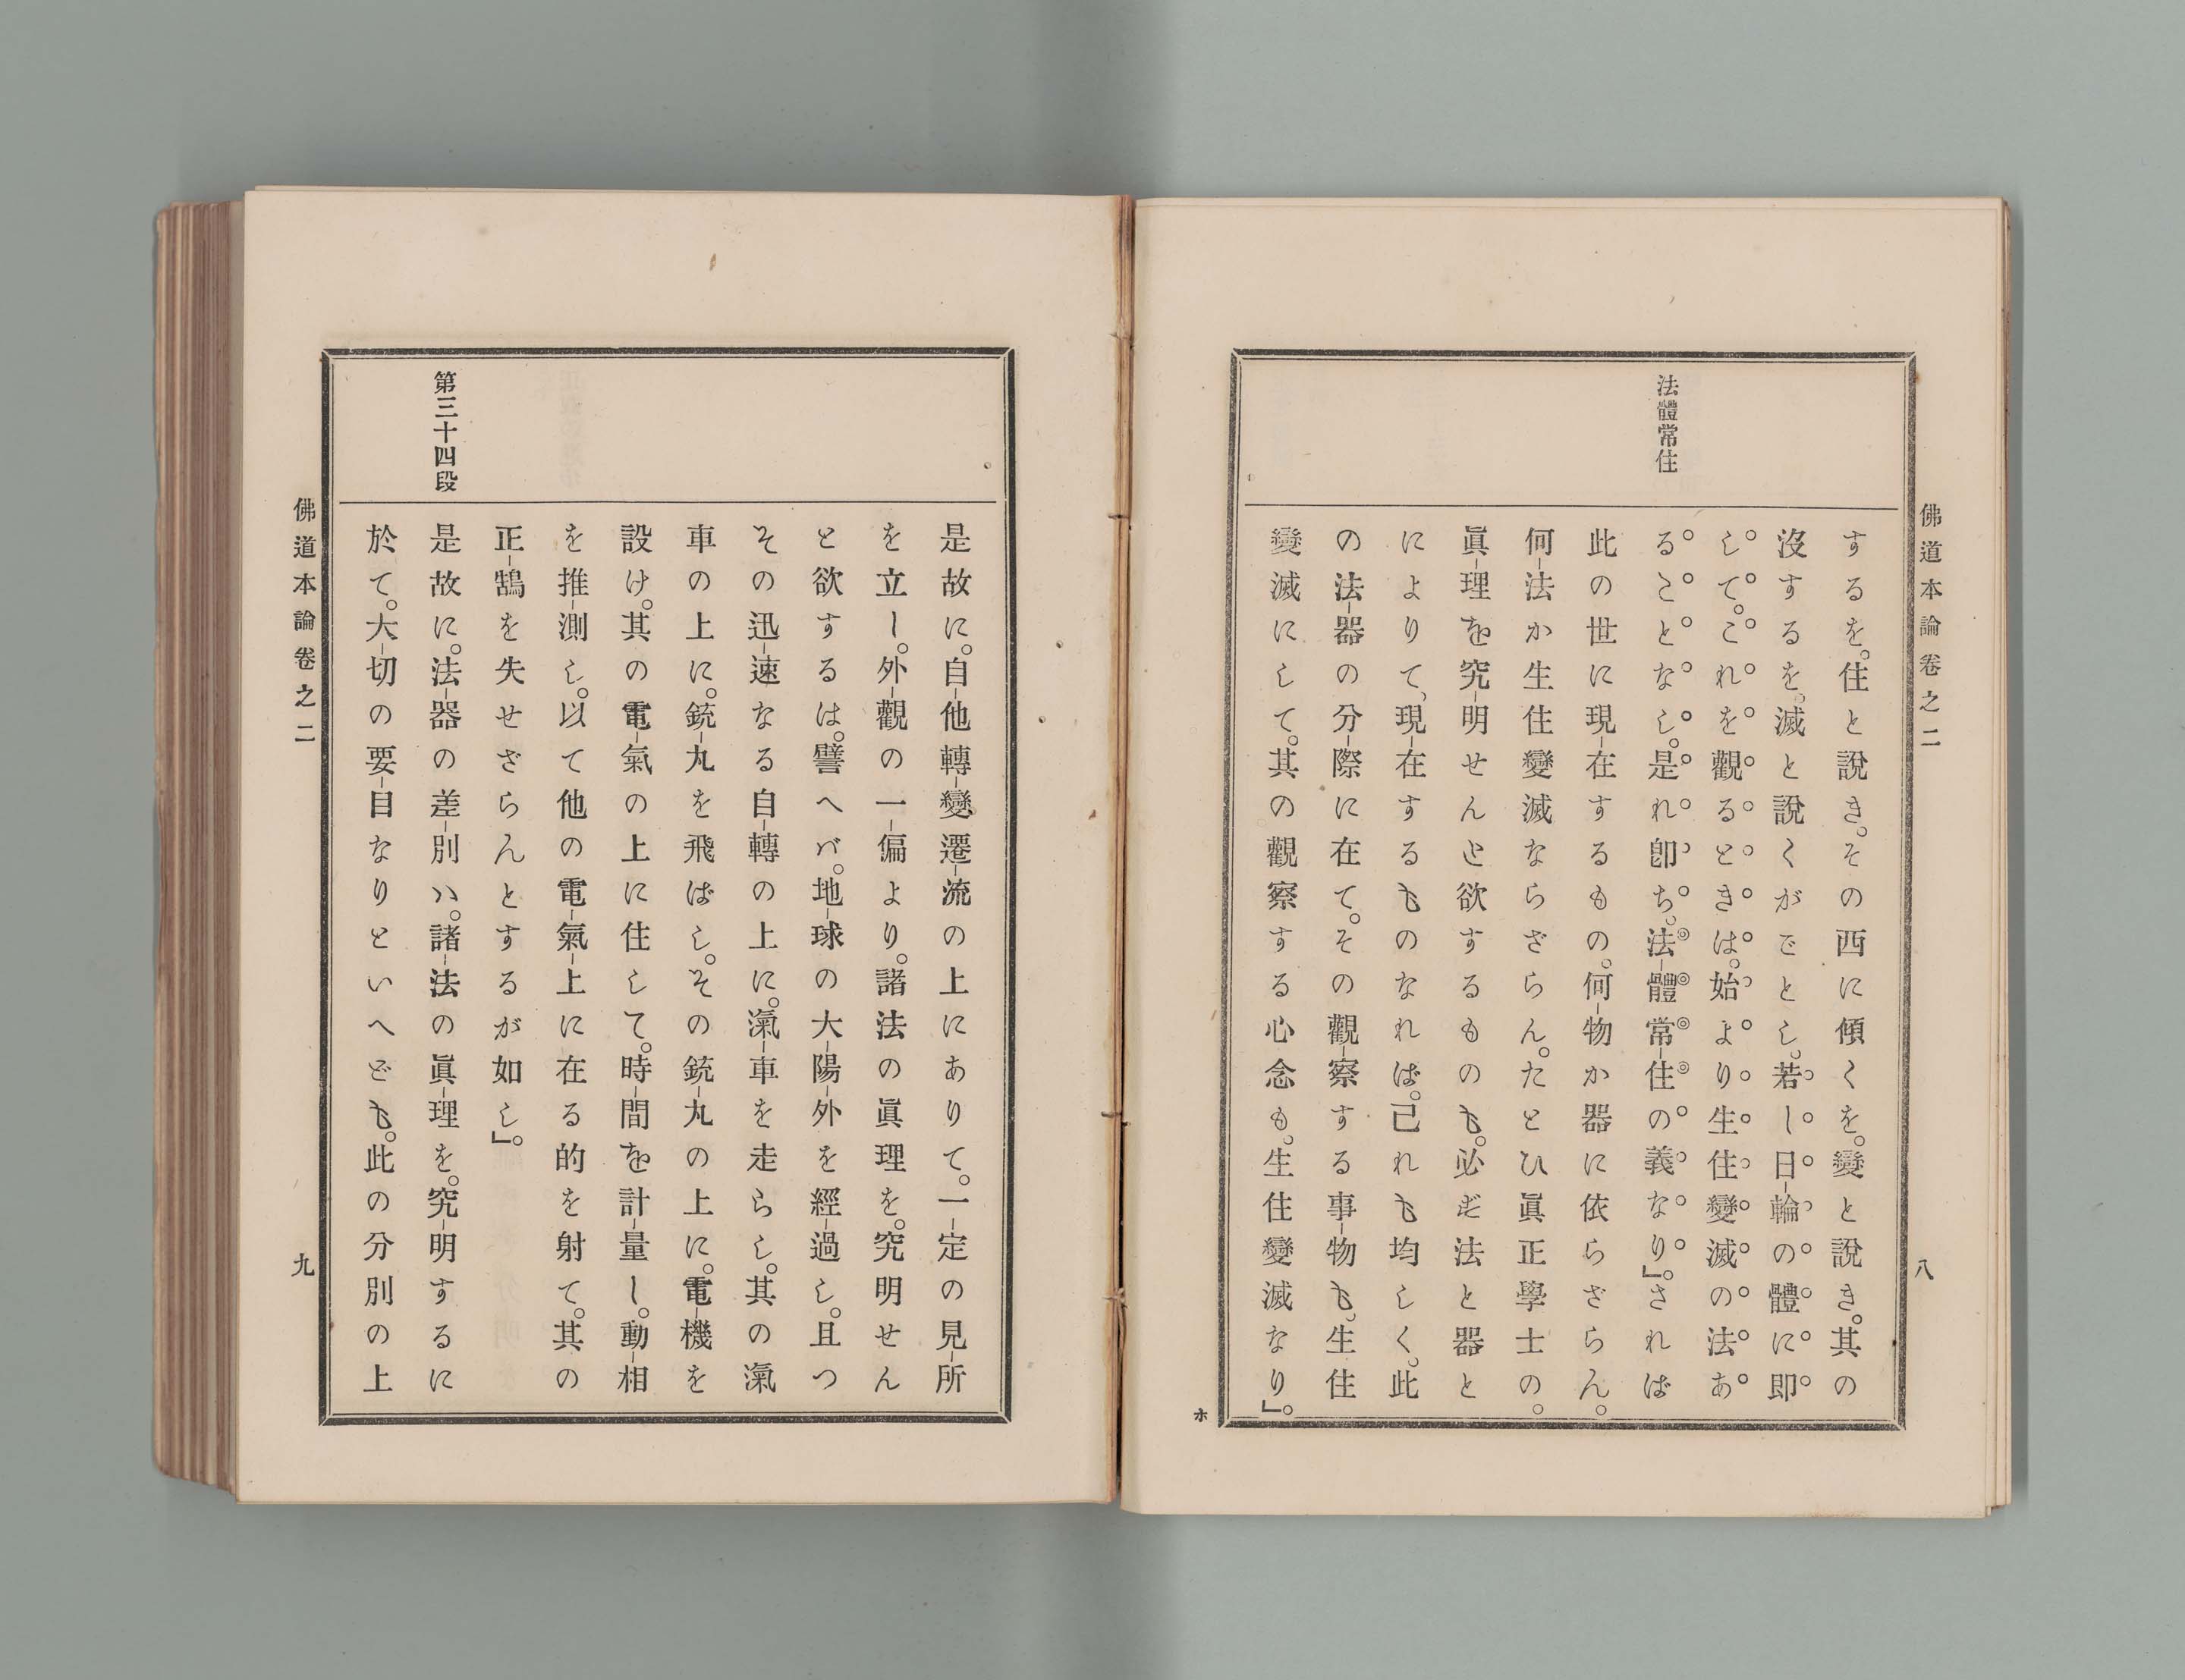 佛道本論卷之二
八
法體常住
するを。住と說き。その西に傾くを。變と說き。其の
沒するを。滅と說くがごとし。若し日-輪の體に即
して。これを觀るときは。始より生住變滅の法あ
ることなし。是れ卽ち。法-體常-住の義なり」。されば
此の世に現-在するもの。何-物か器に依らざらん。
何-法か生住變滅ならざらん。たとひ眞正學士の。
眞-理を究-明せんと欲するものも。必ず法と器と
によりて、現-在するものなれば。己れも均しく。此
の法-器の分-際に在て。その觀-察する事-物も。生住
變滅にして。其の觀察する心念も。生住變滅なり」。
ホ
是故に。自-他轉-變遷-流の上にありて。一-定の見-所
を立し。外-觀の一-偏より。諸法の眞理を。究明せん
と欲するは。譬へバ。地-球の大-陽-外を經-過し。且つ
その迅-速なる自-轉の上に。滊-車を走らし。其の滊
車の上に。銃-丸を飛ばし。その銃-丸の上に。電-機を
設け。其の電-氣の上に住して。時-間を計-量し。動-相
を推-測し。以て他の電-氣-上に在る的を射て。其の
正-鵠を失せざらんとするが如し」。
第三十四段
是故に。法-器の差-別ハ。諸-法の眞-理を。究-明するに
於て。大-切の要-目なりといへども。此の分別の上
佛道本論卷之二
九